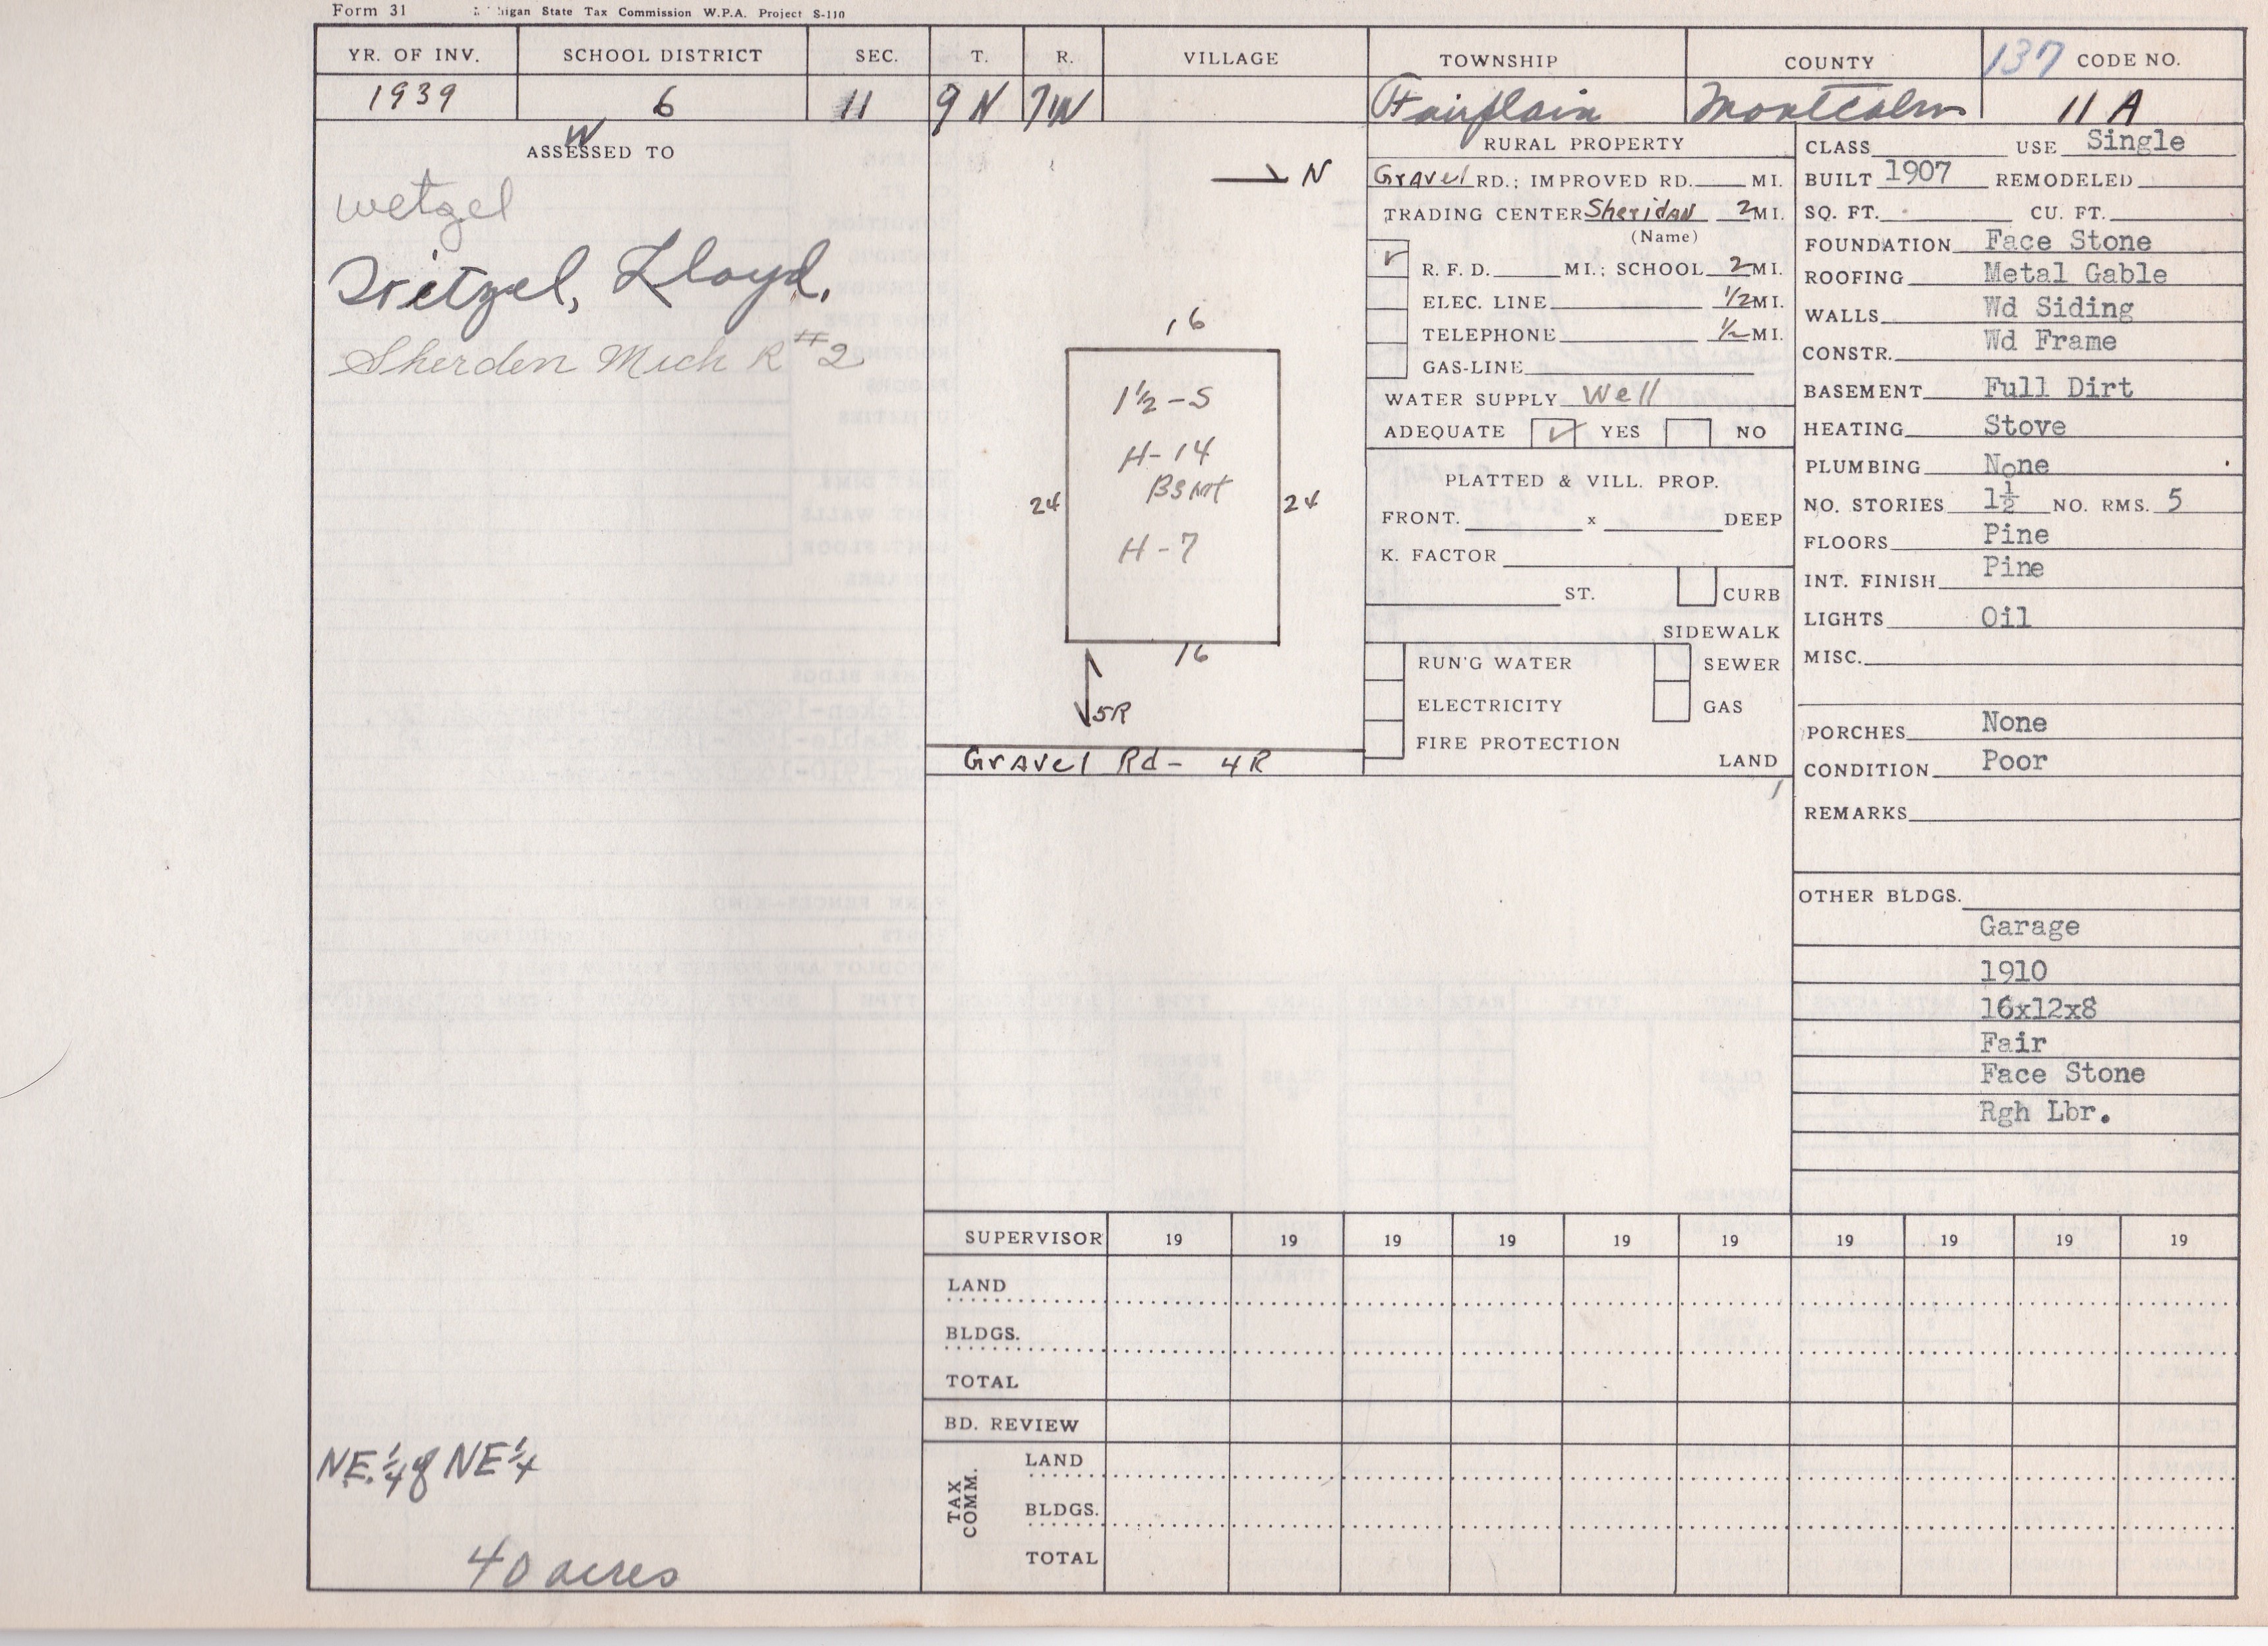 Form 31 higan State Tax Commission W.P.A. Project S-110
YR. OF INV. SCHOOL DISTRICT SEC. T. R. VILLAGE TOWNSHIP COUNTY 137 CODE NO.
1939 6 11 9N 7W Fairplain Montcalm 11 A
W
ASSESSED TO
wetzel
Lloyd,
Sherden Mich R #2
NE 1/4 of NE 1/4
40 acres
N
16
1½-S
H-14
BSMT
24 24
H-7
16
5R
Gravel Rd- 4R
RURAL PROPERTY
Gravel RD.; IMPROVED RD. MI.
TRADING CENTER Sheridan 2 MI.
(Name)
✓ R. F. D. MI.; SCHOOL 2 MI.
ELEC. LINE 1/2 MI.
TELEPHONE 1/2 MI.
GAS-LINE
WATER SUPPLY Well
ADEQUATE ✓ YES NO
PLATTED & VILL. PROP.
FRONT. x DEEP
K. FACTOR
ST. CURB
SIDEWALK
RUN'G WATER SEWER
ELECTRICITY GAS
FIRE PROTECTION
LAND
CLASS USE Single
BUILT 1907 REMODELED
SQ. FT. CU. FT.
FOUNDATION Face Stone
ROOFING Metal Gable
WALLS Wd Siding
CONSTR. Wd Frame
BASEMENT Full Dirt
HEATING Stove
PLUMBING None
NO. STORIES 1½ NO. RMS. 5
FLOORS Pine
INT. FINISH Pine
LIGHTS Oil
MISC.
PORCHES None
CONDITION Poor
REMARKS
OTHER BLDGS.
Garage
1910
16x12x8
Fair
Face Stone
Rgh Lbr.
SUPERVISOR 19 19 19 19 19 19 19 19 19 19
LAND
BLDGS.
TOTAL
BD. REVIEW
TAX COMM.
LAND
BLDGS.
TOTAL